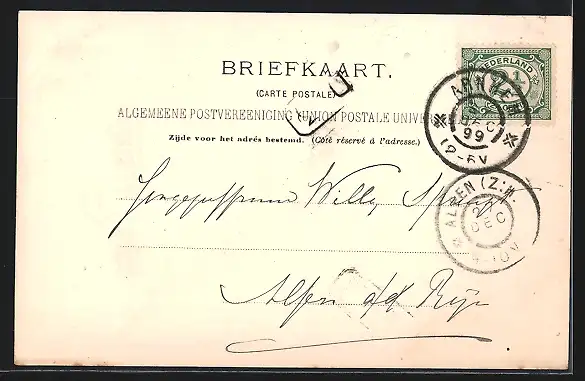 BRIEFKAART.
(CARTE POSTALE)
ALGEMEENE POSTVEREENIGING (UNION POSTALE UNIVER
Zijde voor het adres bestemd. (Côté réservé à l'adresse.)
NEDERLAND
2½
DEC
99
12-6V
ALFEN (Z:H.
2
DEC
Willy
Alfen a/d Rijn